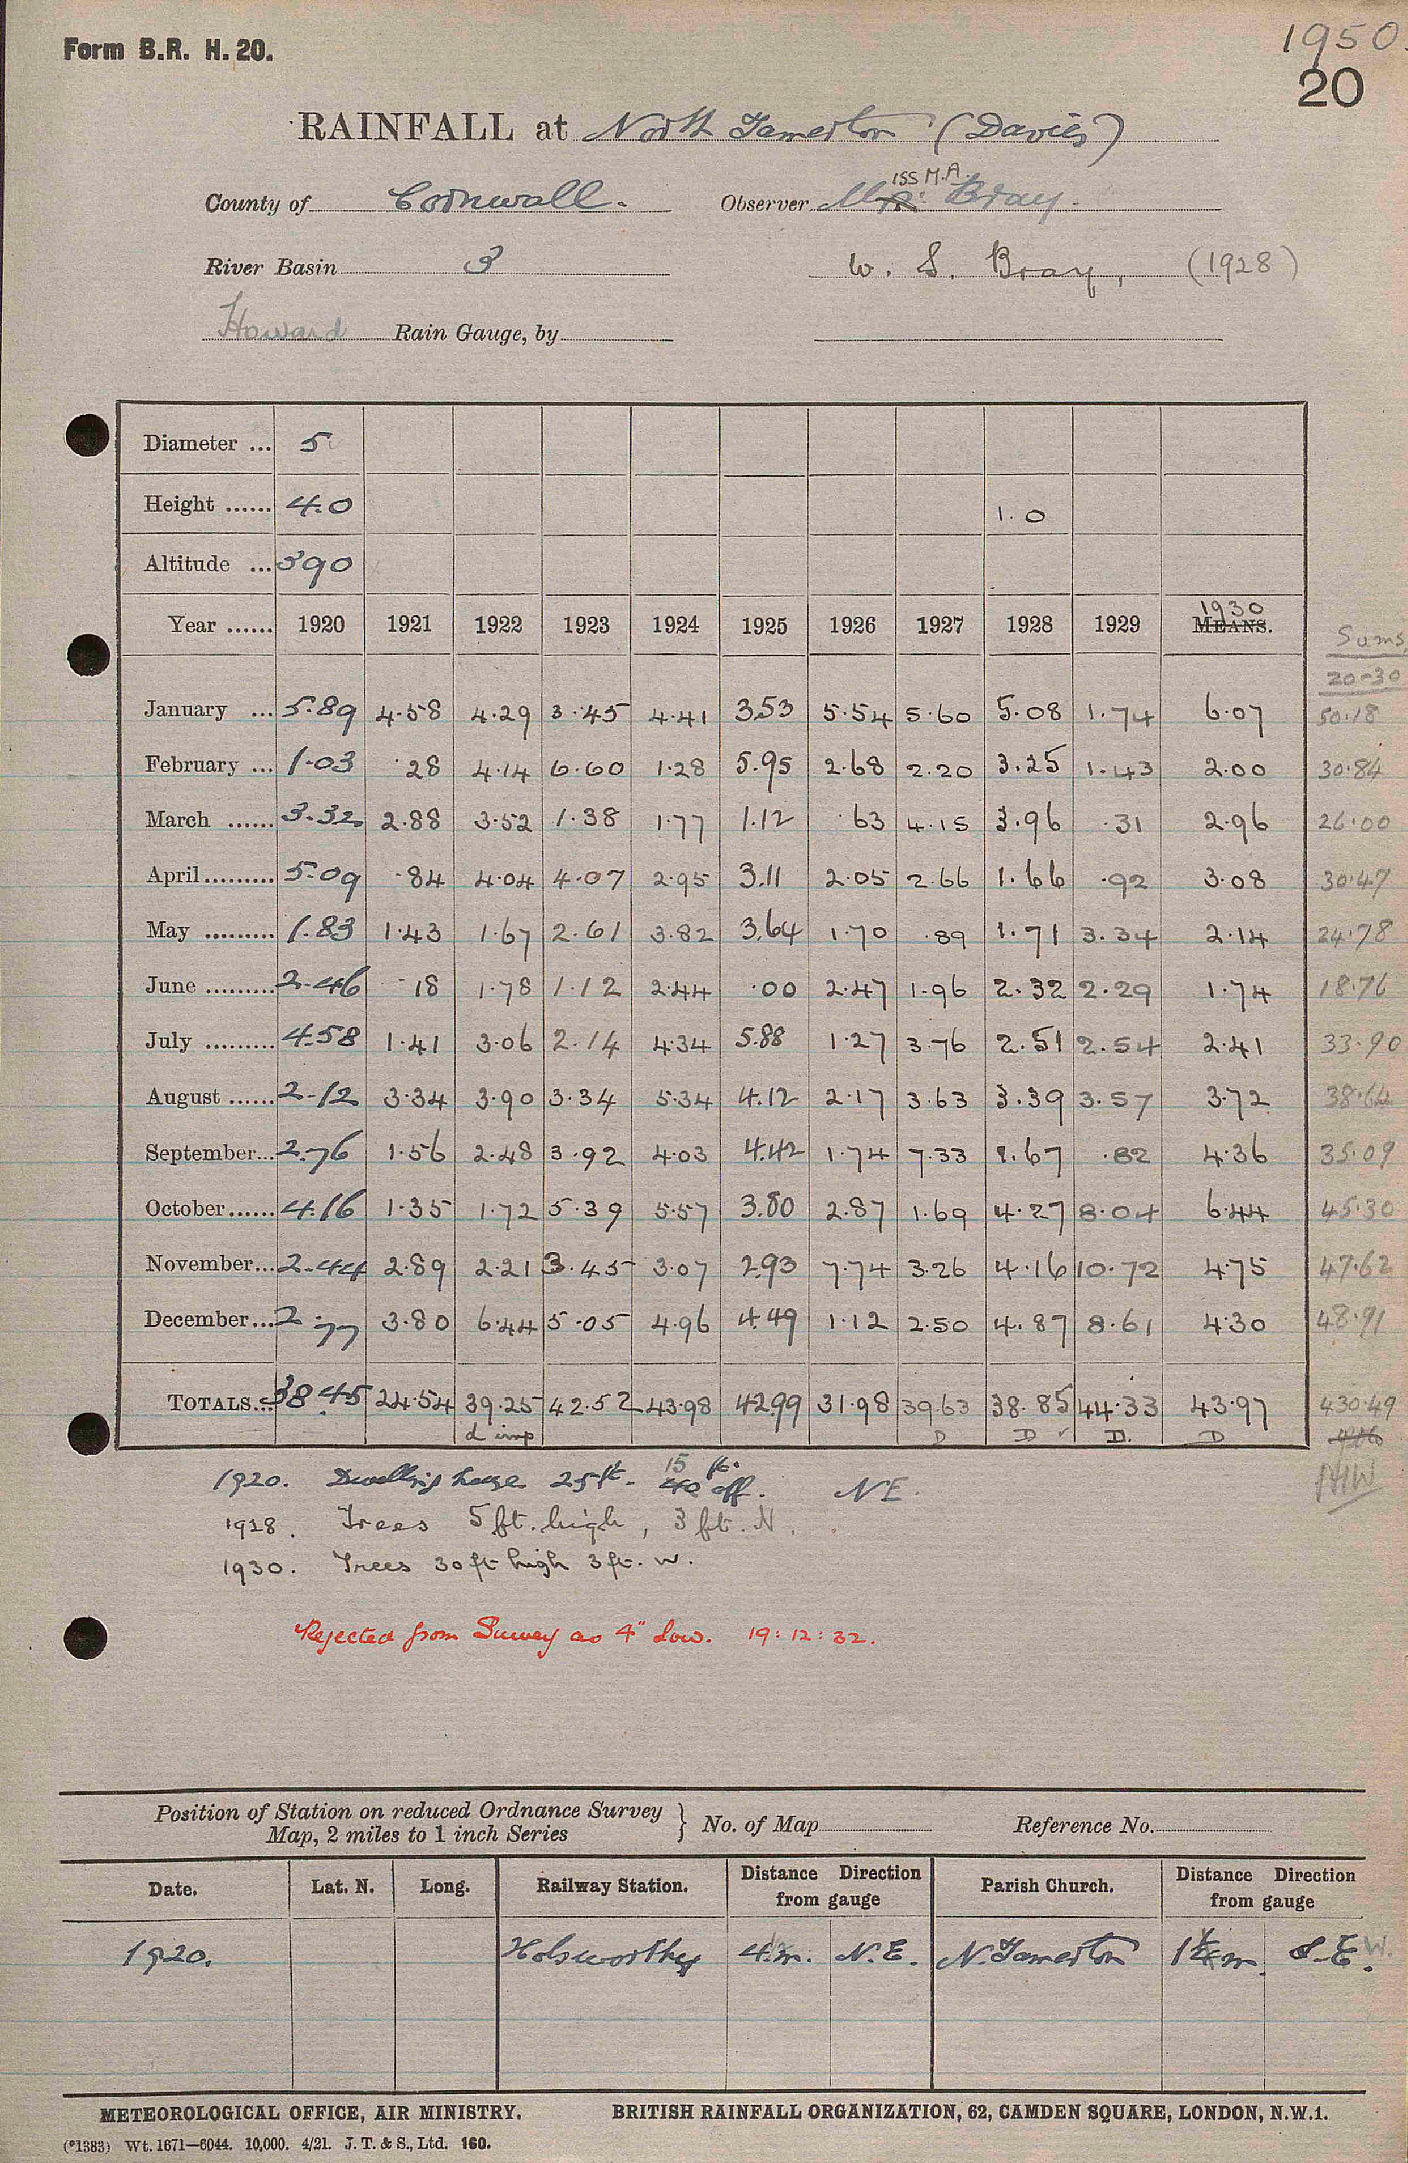 Form B.R. H. 20.
1950.
20
RAINFALL at North Tamerton (Davies)
County of Cornwall. Observer Miss M.A. Bray.
River Basin 3 W. S. Bray, (1928)
Howard Rain Gauge, by
Diameter ... 5
Height ...... 4.0 1.0
Altitude ... 390
Year ...... 1920 1921 1922 1923 1924 1925 1926 1927 1928 1929 1930 MEANS. Sums, 20-30
January ... 5.89 4.58 4.29 3.45 4.41 3.53 5.54 5.60 5.08 1.74 6.07 50.18
February ... 1.03 .28 4.14 6.60 1.28 5.95 2.68 2.20 3.25 1.43 2.00 30.84
March ...... 3.32 2.88 3.52 1.38 1.77 1.12 .63 4.15 3.96 .31 2.96 26.00
April ......... 5.09 .84 4.04 4.07 2.95 3.11 2.05 2.66 1.66 .92 3.08 30.47
May ......... 1.83 1.43 1.67 2.61 3.82 3.64 1.70 .89 1.71 3.34 2.14 24.78
June ......... 2.46 .18 1.78 1.12 2.44 .00 2.47 1.96 2.32 2.29 1.74 18.76
July ......... 4.58 1.41 3.06 2.14 4.34 5.88 1.27 3.76 2.51 2.54 2.41 33.90
August ...... 2.12 3.34 3.90 3.34 5.34 4.12 2.17 3.63 3.39 3.57 3.72 38.64
September ... 2.76 1.56 2.48 3.92 4.03 4.42 1.74 7.33 1.67 .82 4.36 35.09
October ...... 4.16 1.35 1.72 5.39 5.57 3.80 2.87 1.69 4.27 8.04 6.44 45.30
November ... 2.44 2.89 2.21 3.45 3.07 2.93 7.74 3.26 4.16 10.72 4.75 47.62
December ... 2.77 3.80 6.44 5.05 4.96 4.49 1.12 2.50 4.87 8.61 4.30 48.91
TOTALS... 38.45 24.54 39.25 42.52 43.98 42.99 31.98 39.63 38.85 44.33 43.97 430.49
d imp D D ✓ D. D
1920. Dwelling house 25 ft. 15 ft. off. NE.
1928. Trees 5 ft. high, 3 ft. N.
1930. Trees 30 ft high 3 ft. W.
Rejected from Survey as 4" low. 19:12:32.
Position of Station on reduced Ordnance Survey Map, 2 miles to 1 inch Series } No. of Map Reference No.
Date. Lat. N. Long. Railway Station. Distance Direction from gauge Parish Church. Distance Direction from gauge
1920. Holsworthy 4 m. N.E. N. Tamerton 1¼ m. S.E. W.
METEOROLOGICAL OFFICE, AIR MINISTRY. BRITISH RAINFALL ORGANIZATION, 62, CAMDEN SQUARE, LONDON, N.W.1.
(*1383) Wt. 1671—6044. 10,000. 4/21. J. T. & S., Ltd. 160.